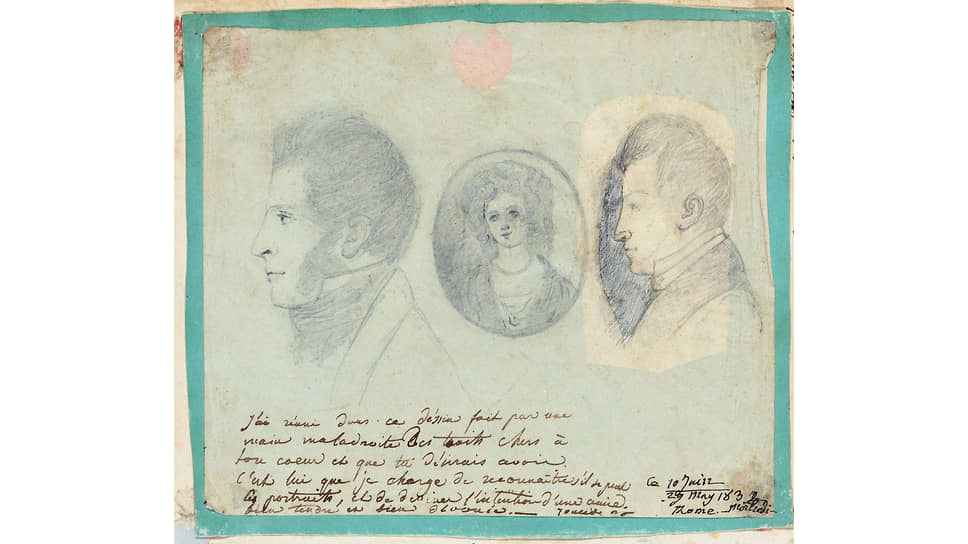 J'ai réuni dans ce déssin fait par une
main maladroite les traits chers à
ton coeur et que tu désirais avoir.
C'est lui que je charge de reconnaitre s'il se peut
les portraits, et de deviner l'intention d'une amie
bien tendre et bien dévouée. —
Ce 10 Juin
29 May 183
Rome.